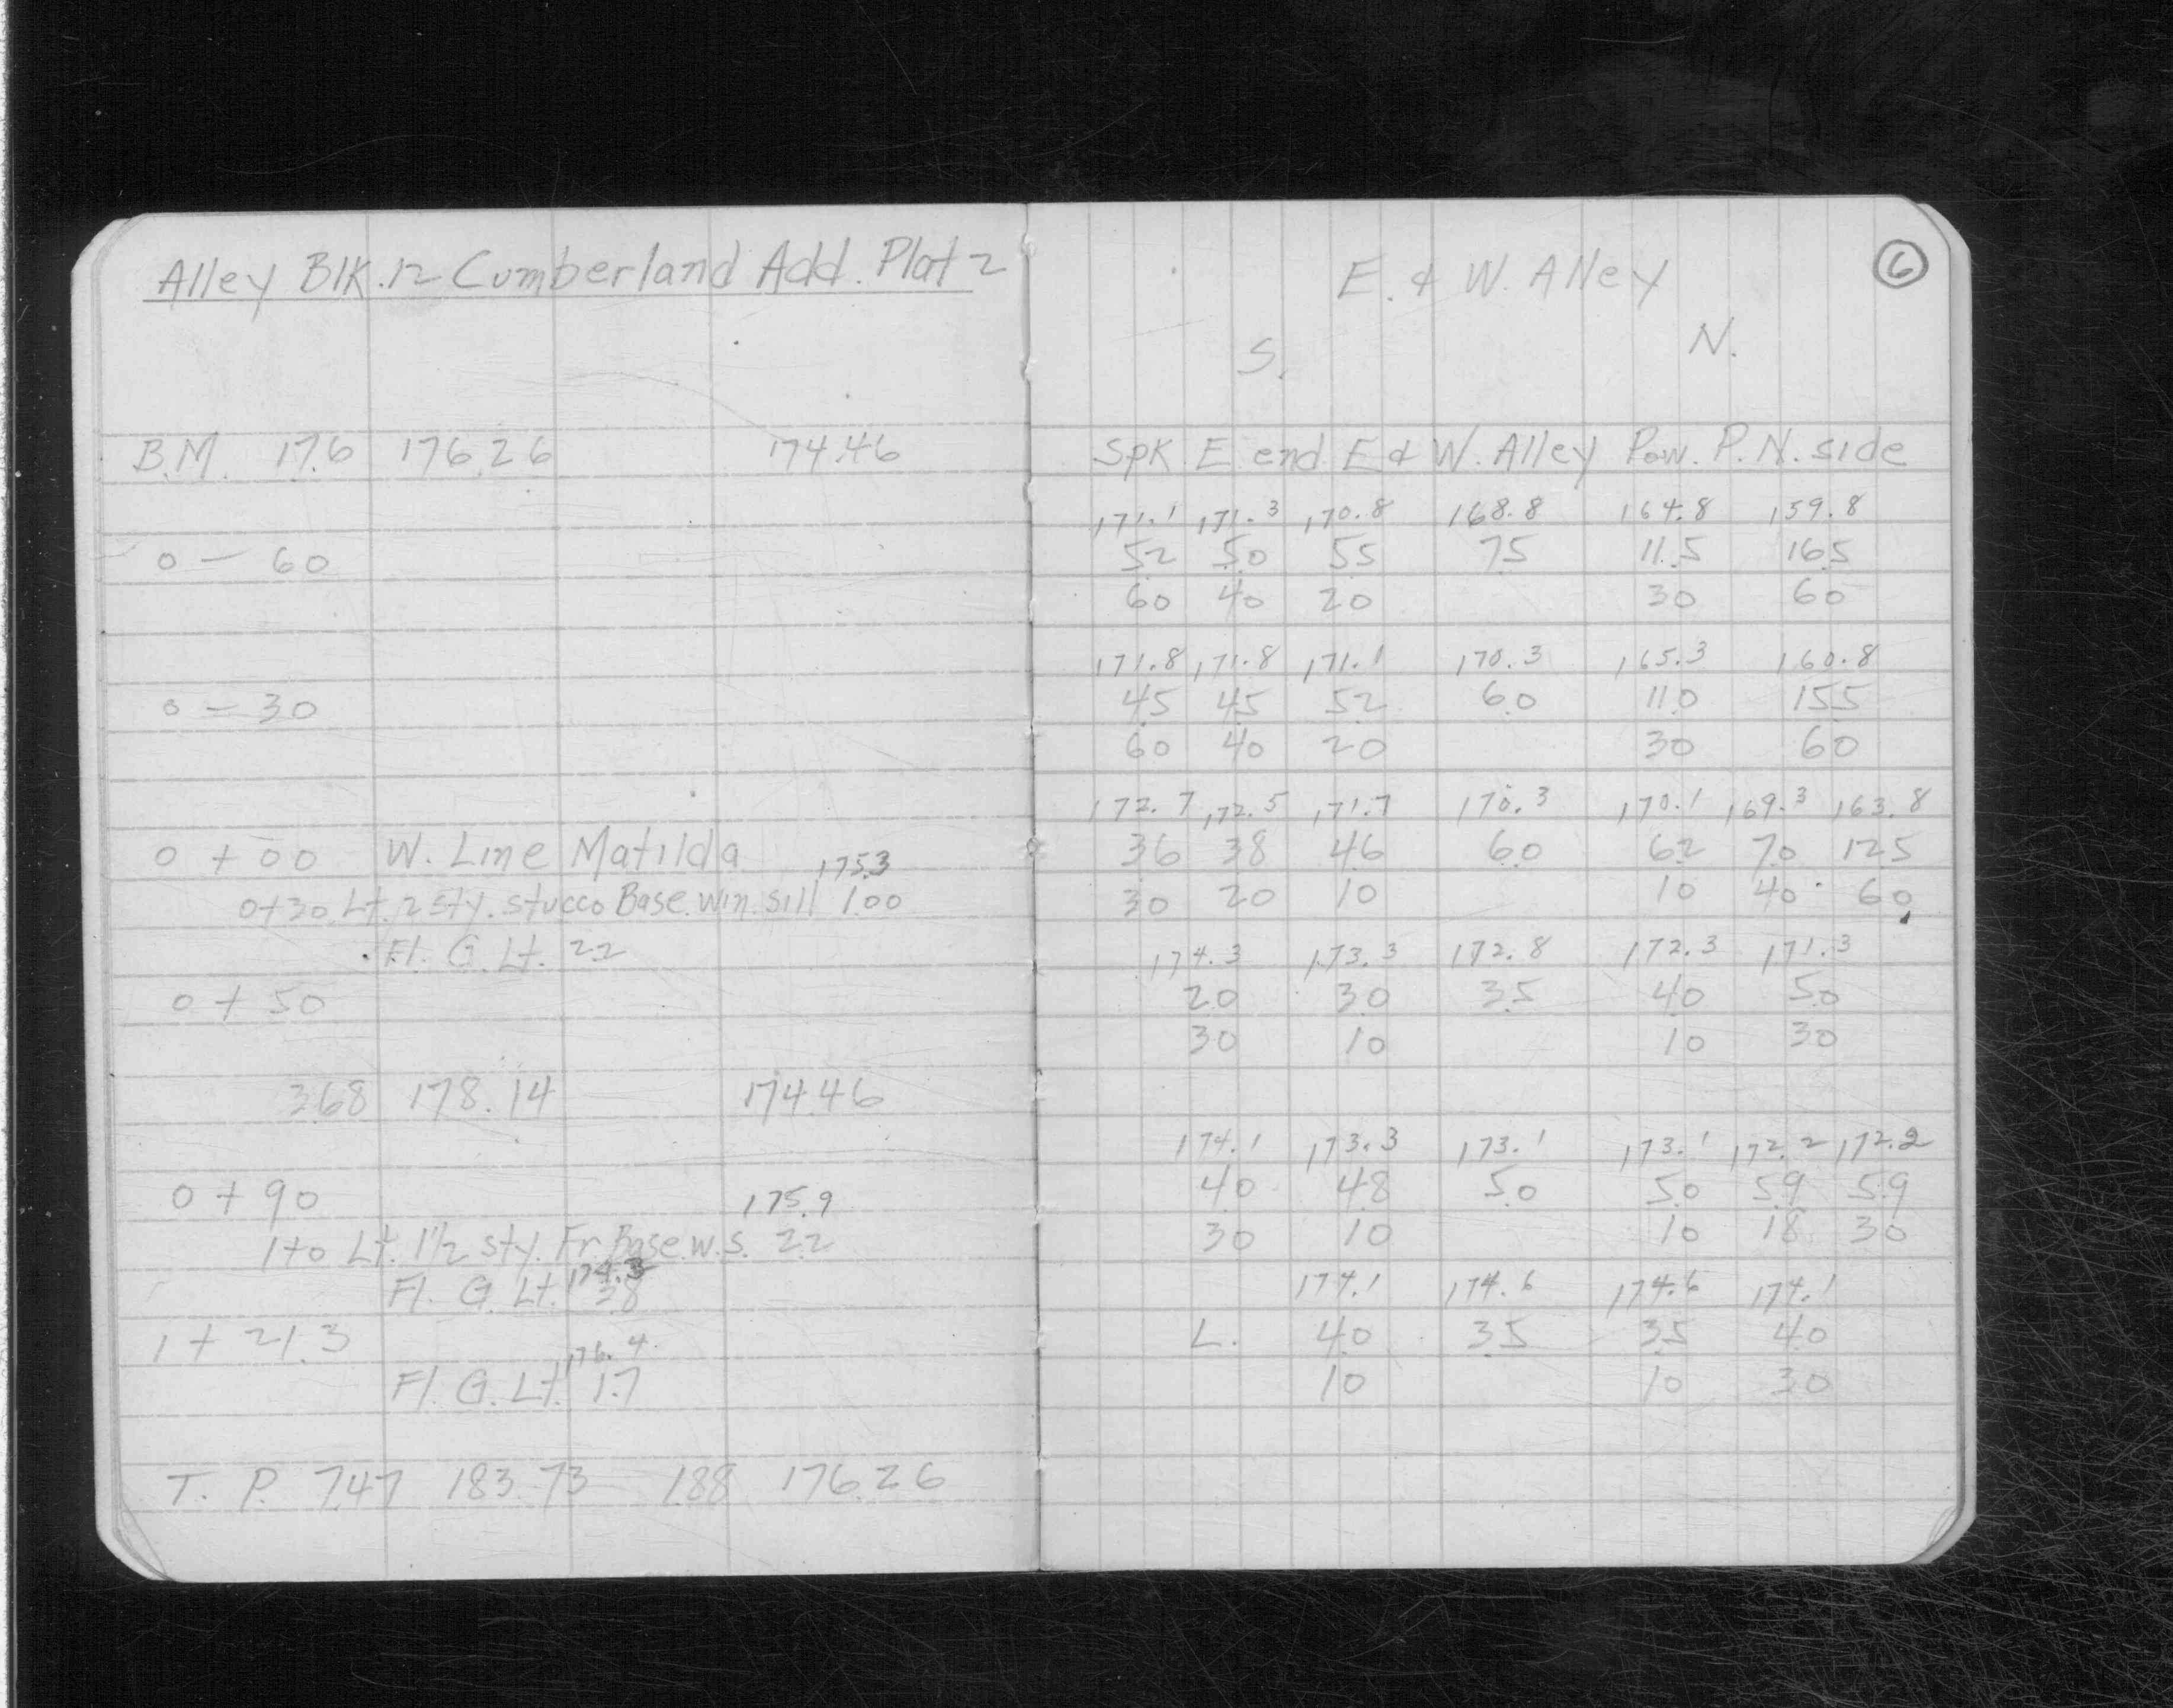 Alley Blk. 12 Cumberland Add. Plat 2
B.M. 1.76 176.26 174.46
0 - 60
0 - 30
0 + 00 W. Line Matilda 175.3
0+30 Lt. 2 sty. stucco Base. win. sill 1.00
Fl. G. Lt. 2.2
0 + 50
3.68 178.14 174.46
0 + 90 175.9
1+0 Lt. 1½ sty. Fr. Base. w.s. 2.2
174.3
Fl. G. Lt. 3.8
1 + 21.3
176.4
Fl. G. Lt. 1.7
T. P. 7.47 183.73 1.88 176.26
6
E. & W. Alley
S. N.
Spk E end E & W. Alley Pow. P. N. side
171.1 171.3 170.8 168.8 164.8 159.8
5.2 5.0 5.5 7.5 11.5 16.5
60 40 20 30 60
171.8 171.8 171.1 170.3 165.3 160.8
4.5 4.5 5.2 6.0 11.0 15.5
60 40 20 30 60
172.7 172.5 171.7 170.3 170.1 169.3 163.8
3.6 3.8 4.6 6.0 6.2 7.0 12.5
30 20 10 10 40 60
174.3 173.3 172.8 172.3 171.3
2.0 3.0 3.5 4.0 5.0
30 10 10 30
174.1 173.3 173.1 173.1 172.2 172.2
4.0 4.8 5.0 5.0 5.9 5.9
30 10 10 18 30
174.1 174.6 174.6 174.1
L. 4.0 3.5 3.5 4.0
10 10 30